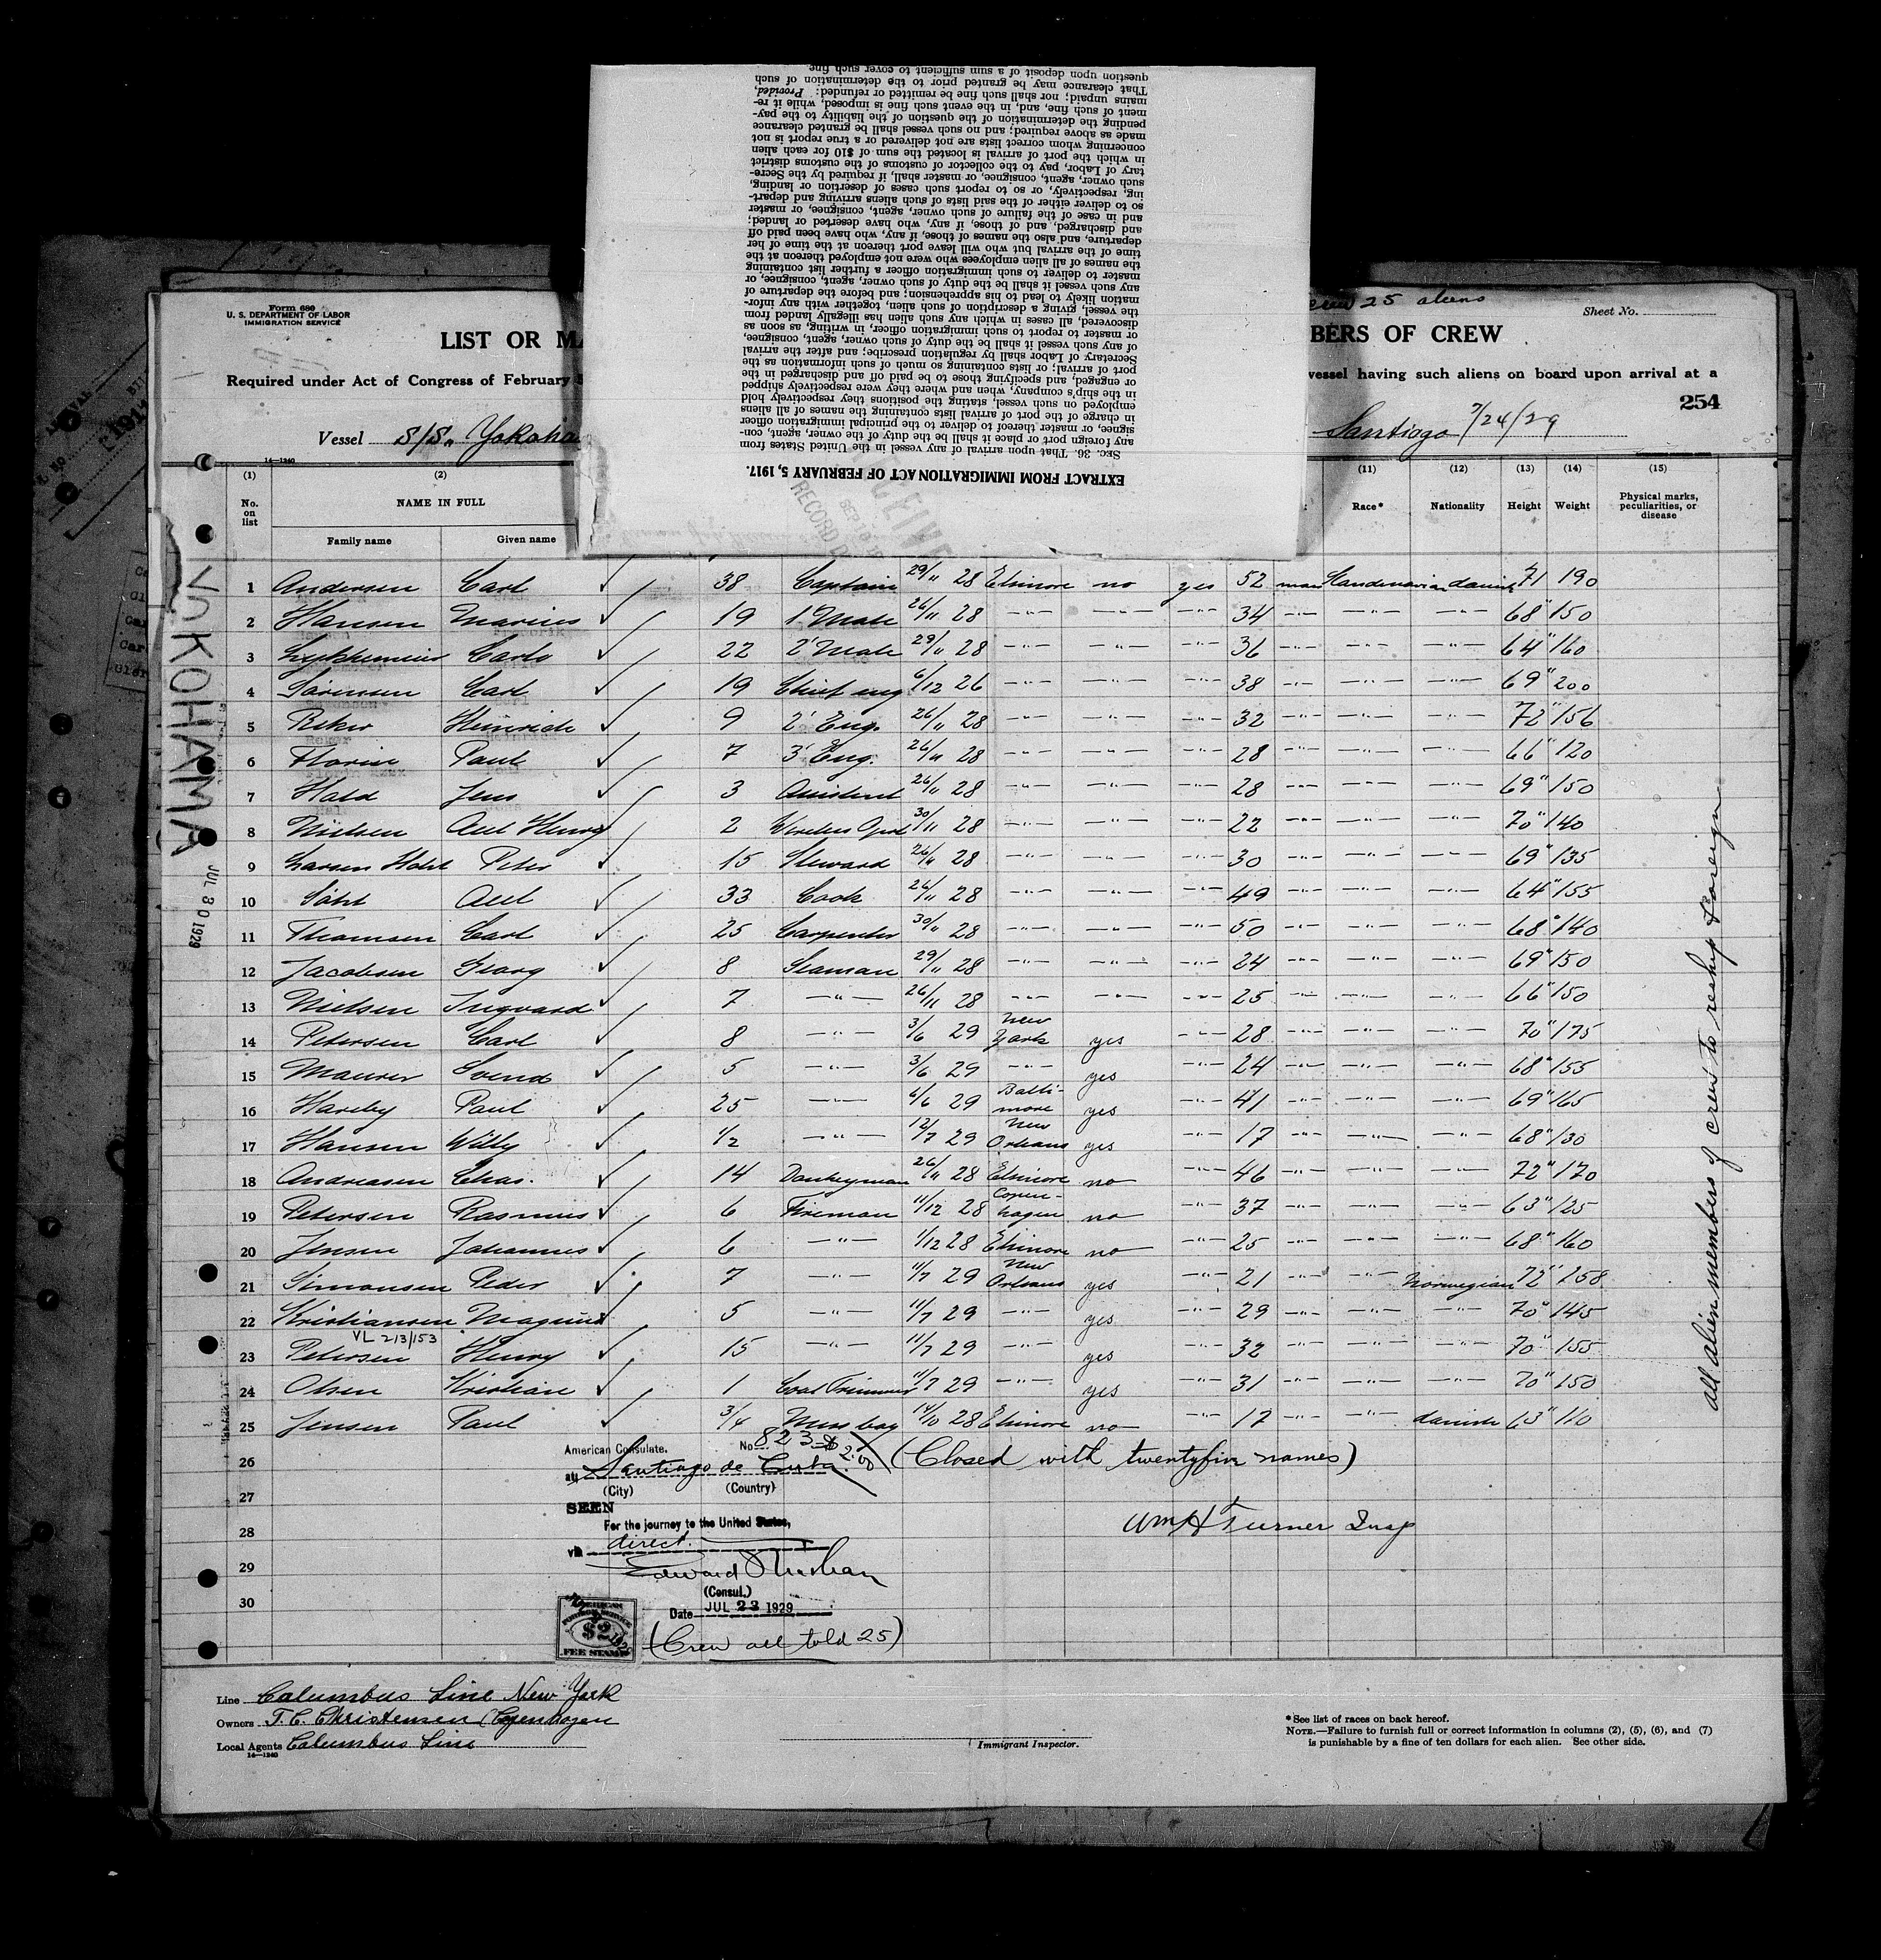 EXTRACT FROM IMMIGRATION ACT OF FEBRUARY 5, 1917.
SEC. 36. That upon arrival of any vessel in the United States from
any foreign port or place it shall be the duty of the owner, agent, con-
signee, or master thereof to deliver to the principal immigration officer
in charge of the port of arrival lists containing the names of all aliens
employed on such vessel, stating the positions they respectively hold
in the ship's company, when and where they were respectively shipped
or engaged, and specifying those to be paid off and discharged in the
port of arrival; or lists containing so much of such information as the
Secretary of Labor shall by regulation prescribe; and after the arrival
of any such vessel it shall be the duty of such owner, agent, consignee,
or master to report to such immigration officer, in writing, as soon as
discovered, all cases in which any such alien has illegally landed from
the vessel, giving a description of such alien, together with any infor-
mation likely to lead to his apprehension; and before the departure of
any such vessel it shall be the duty of such owner, agent, consignee, or
master to deliver to such immigration officer a further list containing
the names of all alien employees who were not employed thereon at the
time of the arrival but who will leave port thereon at the time of her
departure, and also the names of those, if any, who have been paid off
and discharged, and of those, if any, who have deserted or landed;
and in case of the failure of such owner, agent, consignee, or master
so to deliver either of the said lists of such aliens arriving and depart-
ing, respectively, or so to report such cases of desertion or landing,
such owner, agent, consignee, or master shall, if required by the Secre-
tary of Labor, pay to the collector of customs of the customs district
in which the port of arrival is located the sum of $10 for each alien
concerning whom correct lists are not delivered or a true report is not
made as above required; and no such vessel shall be granted clearance
pending the determination of the question of the liability to the pay-
ment of such fine, and, in the event such fine is imposed, while it re-
mains unpaid; nor shall such fine be remitted or refunded: Provided,
That clearance may be granted prior to the determination of such
question upon deposit of a sum sufficient to cover such fine
Form 680
U. S. DEPARTMENT OF LABOR
IMMIGRATION SERVICE
crew 25 aliens
Sheet No.
LIST OR MA BERS OF CREW
Required under Act of Congress of February 5 vessel having such aliens on board upon arrival at a
254
Vessel S/S. Yokoha Santiago 7/24/29
14—1240
(1) (2) (11) (12) (13) (14) (15)
No. on list NAME IN FULL Race* Nationality Height Weight Physical marks, peculiarities, or disease
Family name Given name
1 Andersen Carl 38 Captain 29/11 28 Elsinore no yes 52 man Scandinavian danish 71 190
2 Hansen Marius 19 1' Mate 26/11 28 —"— —"— —"— 34 —"— —"— —"— 68" 150
3 Carlo 22 2' Mate 29/11 28 —"— —"— —"— 36 —"— —"— —"— 64" 160
4 Sörensen Carl 19 Chief eng 6/12 26 —"— —"— —"— 38 —"— —"— —"— 69" 200
5 Reker Heinrich 9 2' Eng. 26/11 28 —"— —"— —"— 32 —"— —"— —"— 72" 156
6 Florin Paul 7 3' Eng. 26/11 28 —"— —"— —"— 28 —"— —"— —"— 66" 120
7 Hald Jens 3 Assistent 26/11 28 —"— —"— —"— 28 —"— —"— —"— 69" 150
8 Nielsen Axel Henry 2 Wireless Oprt 30/11 28 —"— —"— —"— 22 —"— —"— —"— 70" 140
9 Larsen Holst Peter 15 Steward 26/11 28 —"— —"— —"— 30 —"— —"— —"— 69" 135
10 Axel 33 Cook 26/11 28 —"— —"— —"— 49 —"— —"— —"— 64" 155
11 Thomsen Carl 25 Carpenter 30/11 28 —"— —"— —"— 50 —"— —"— —"— 68" 140
12 Jacobsen Georg 8 Seaman 29/11 28 —"— —"— —"— 24 —"— —"— —"— 69" 150
13 Nielsen Ingvard 7 —"— 26/11 28 —"— —"— —"— 25 —"— —"— —"— 66" 150
14 Petersen Carl 8 —"— 3/6 29 New York yes —"— 28 —"— —"— —"— 70" 175
15 Maurer Svend 5 —"— 3/6 29 —"— yes —"— 24 —"— —"— —"— 68" 155
16 Hareby Paul 25 —"— 6/6 29 Baltimore yes —"— 41 —"— —"— —"— 69" 165
17 Hansen Willy 1/2 —"— 12/7 29 New Orleans yes —"— 17 —"— —"— —"— 68" 130
18 Andreasen Chas. 14 Donkeyman 26/11 28 Elsinore no —"— 46 —"— —"— —"— 72" 170
19 Petersen Rasmus 6 Fireman 11/12 28 Copenhagen no —"— 37 —"— —"— —"— 63" 125
20 Jensen Johannes 6 —"— 1/12 28 Elsinore no —"— 25 —"— —"— —"— 68" 160
21 Simonsen Peder 7 —"— 11/7 29 New Orleans yes —"— 21 —"— —"— Norwegian 72" 158
22 Kristiansen Magnus 5 —"— 11/7 29 —"— yes —"— 29 —"— —"— —"— 70" 145
VL 213/153
23 Petersen Henry 15 —"— 11/7 29 —"— yes —"— 32 —"— —"— —"— 70" 155
24 Olsen Kristian 1 Coal Trimmer 11/7 29 —"— yes —"— 31 —"— —"— —"— 70" 150
25 Jensen Paul 3/4 Mess boy 14/10 28 Elsinore no —"— 17 —"— —"— danish 63" 110
26
27
28
29
30
American Consulate. No. 823 $2.00
at Santiago de Cuba
(City) (Country)
SEEN
For the journey to the United States,
via direct.
(Consul.)
Date JUL 23 1929
(Closed with twentyfive names)
Wm H Turner Insp
AMERICAN FOREIGN SERVICE $2 FEE STAMP
(Crew all told 25)
YOKOHAMA
JUL 30 1929
all alien members of crew to reship foreign
RECEIVE
SEP
RECORD
Line Columbus Line New York
Owners T. C. Christensen Copenhagen
Local Agents Columbus Line
14—1240
Immigrant Inspector.
*See list of races on back hereof.
NOTE.—Failure to furnish full or correct information in columns (2), (5), (6), and (7)
is punishable by a fine of ten dollars for each alien. See other side.